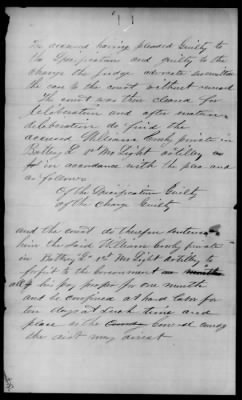 The accused having pleaded Guilty to
the Specification and guilty to the
charge the judge advocate submitted
the case to the court without remark
The court was then cleared for
deliberation and after mature
deliberation do find the
accused William private in
Battery 1st Mo Light Artillery as
in accordance with the plea and
as follows
Of the Specification Guilty
Of the Charge Guilty
and the court do therefore sentence
him the said William private
in Battery 1st Mo Light Artillery to
forfeit to the Government
all his pay proper for one month
and be confined at hard labor for
ten days at such time and
place as the Genral comdg
the dist may direct